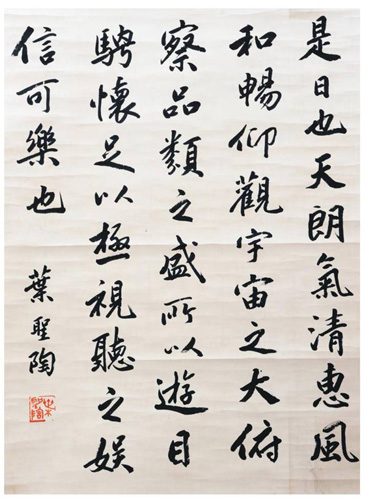 是日也天朗氣清惠風
和暢仰觀宇宙之大俯
察品類之盛所以遊目
騁懷足以極視聽之娛
信可樂也
葉聖陶